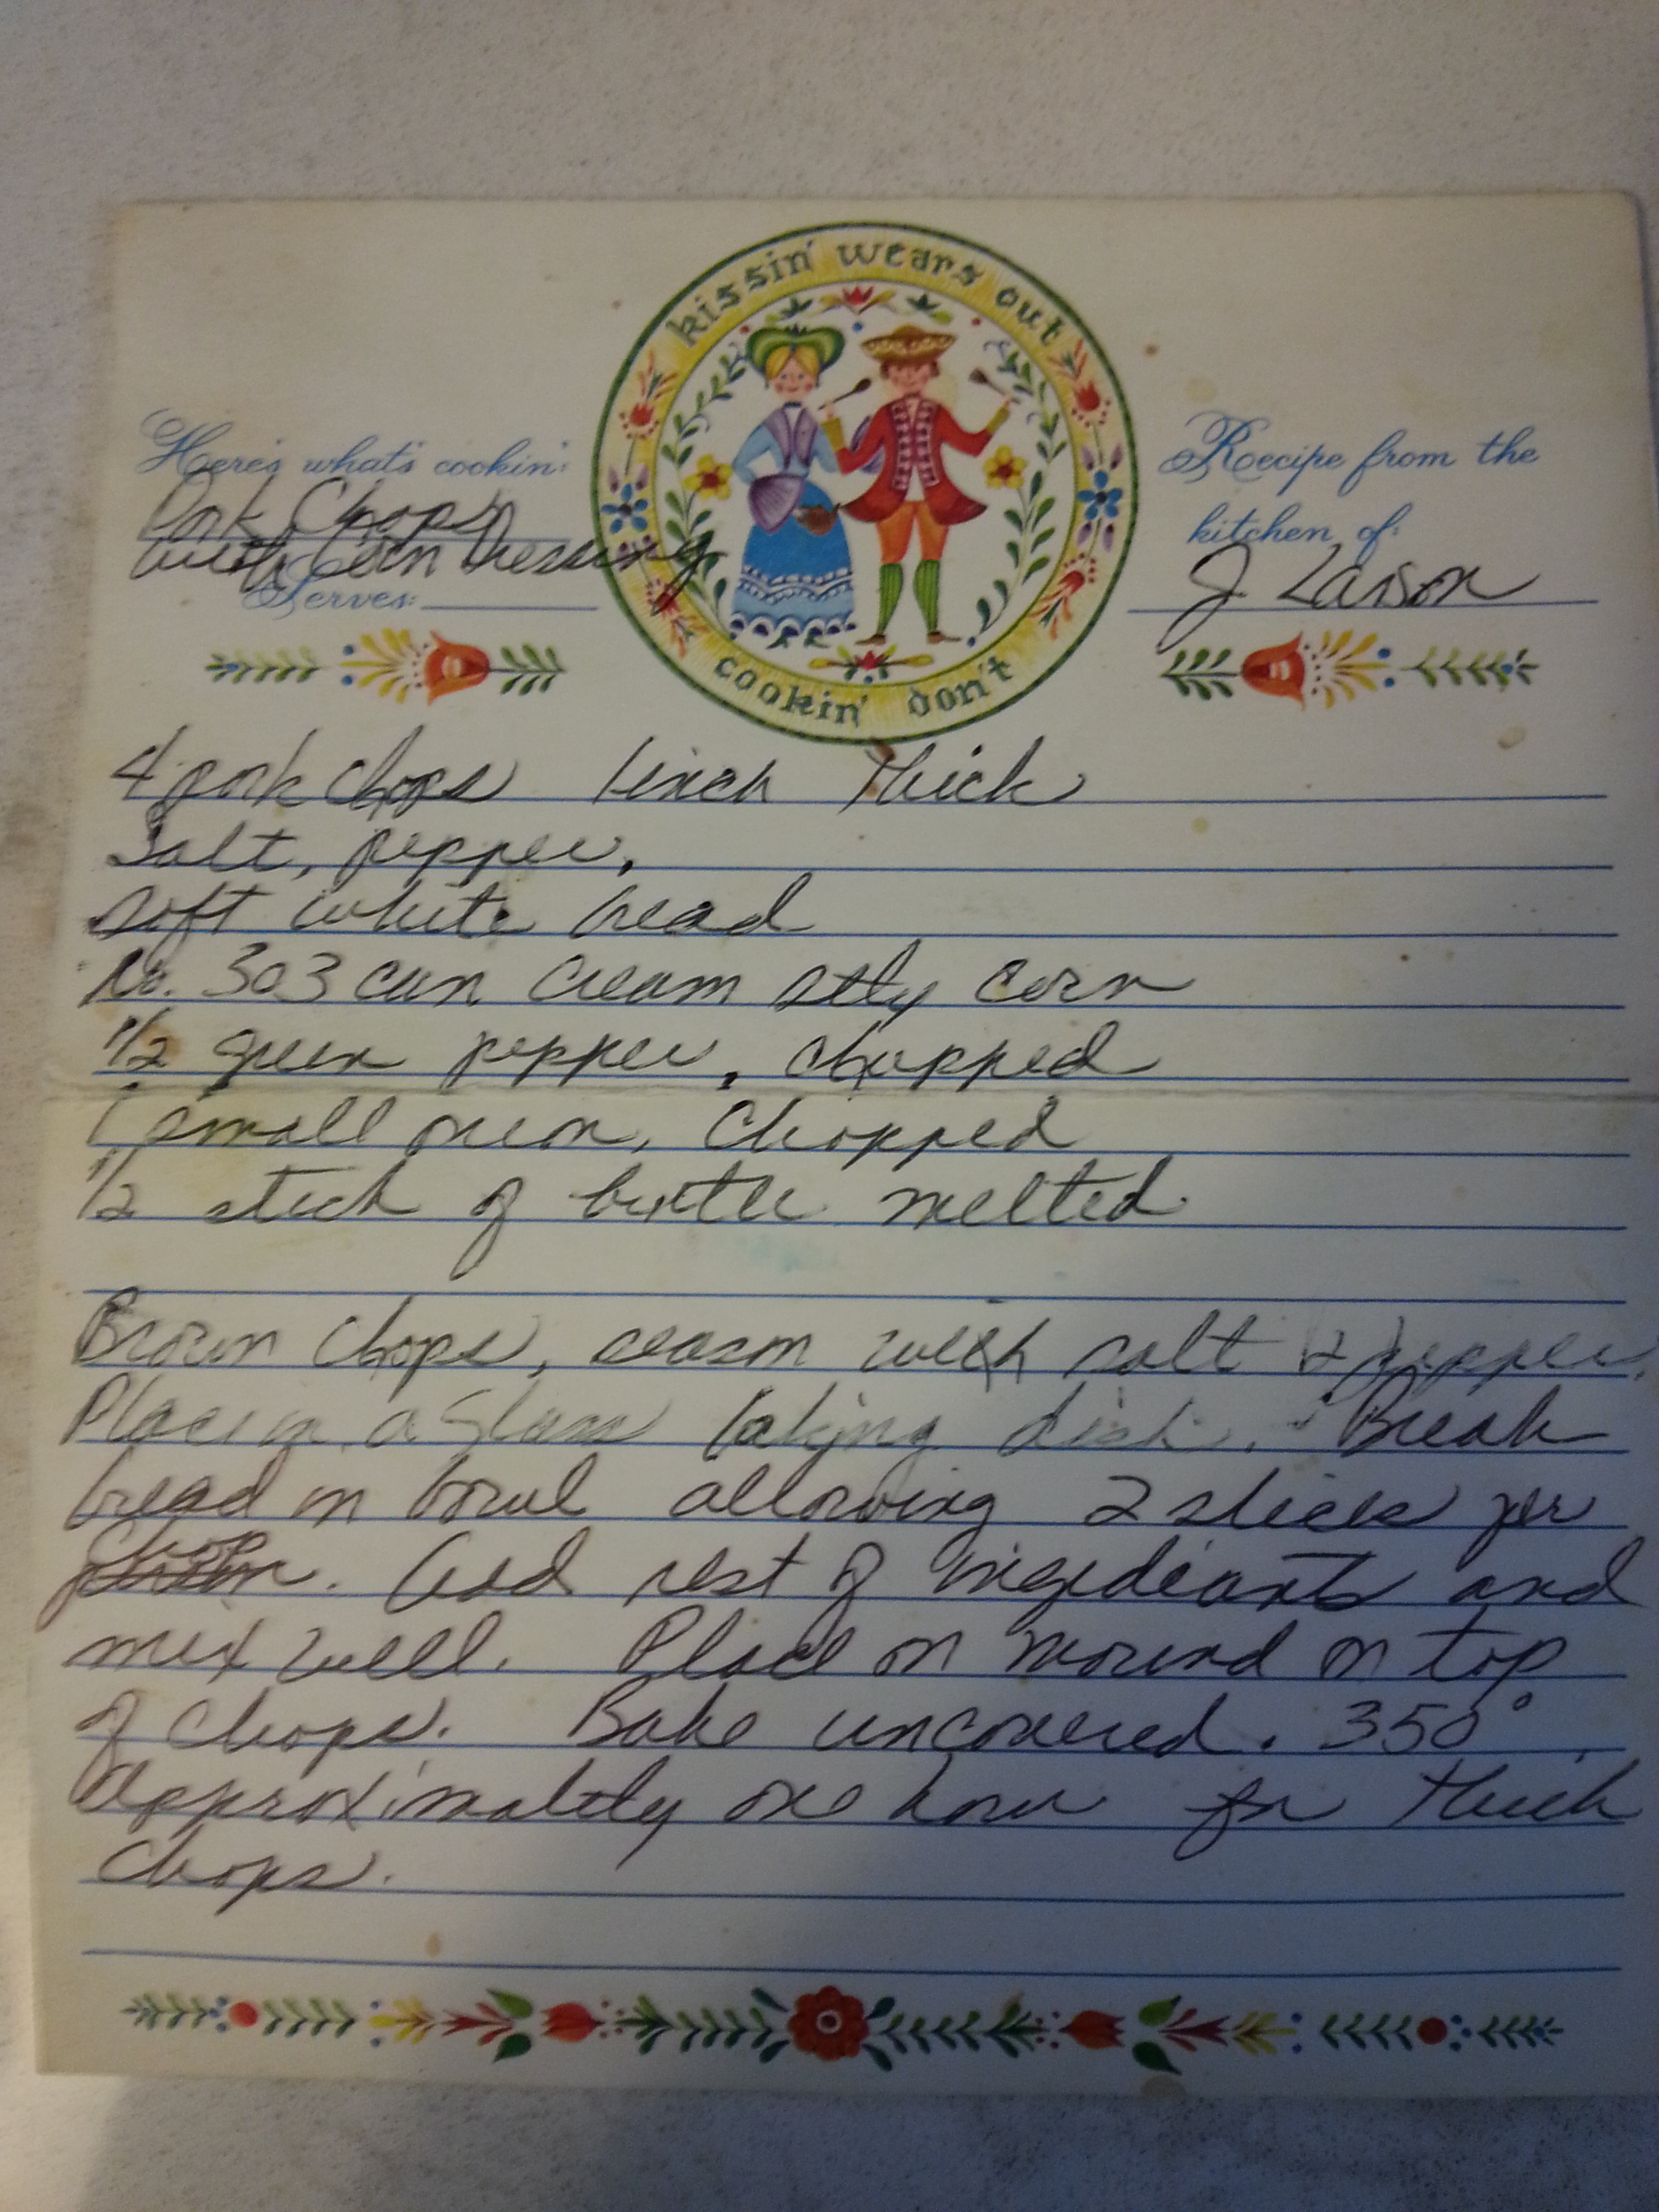 kissin' wears out
cookin' don't
Here's what's cookin':
Pork Chops
with Corn Dressing
Serves:
Recipe from the
kitchen of:
J Larson
4 pork chops 1 inch thick
Salt, pepper,
soft white bread
No. 303 can cream stly corn
1/2 green pepper, chopped
1 small onion, chopped
1/2 stick of butter melted
Brown chops, season with salt & pepper.
Place in a glass baking dish. Break
bread in bowl allowing 2 slices per
chop. Add rest of ingredients and
mix well. Place on mound on top
of chops. Bake uncovered. 350°.
Approximately one hour for thick
chops.